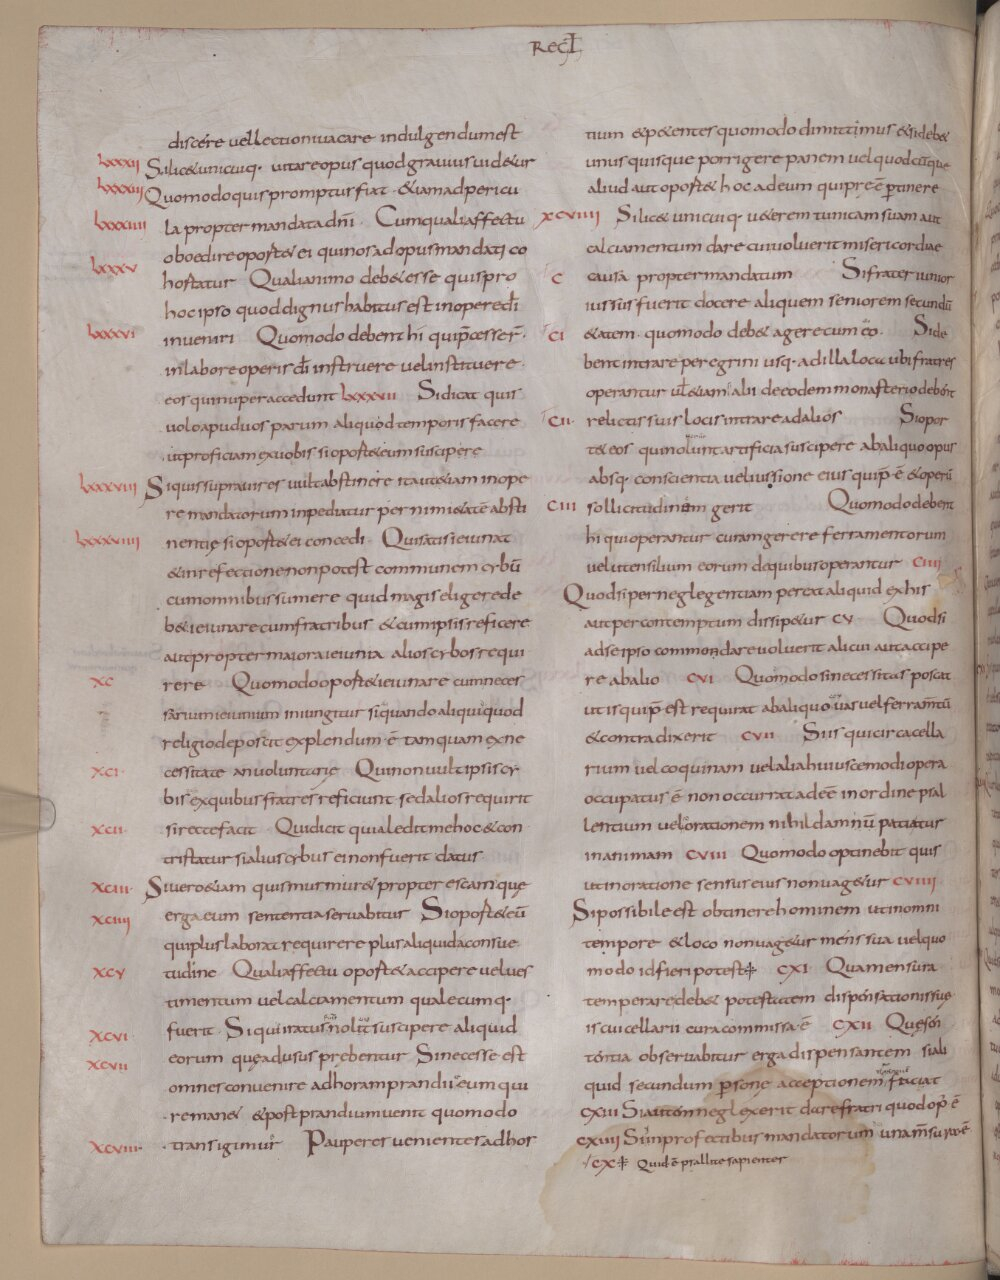 Reg I
discere vel lectioni vacare indulgendum est
lxxxii Si licet unicuiq· vitare opus quod gravius videtur
lxxxiii Quomodo quis promptus fiat · etiam ad pericu
lxxxiiii la propter mandata dnī · Cum quali affectu
oboedire oportet ei qui nos ad opus mandati co
lxxxv hortatur Quali animo debet esse quis pro
hoc ipso quod dignus habitus est in opere dī
lxxxvi inveniri Quomodo debent hi qui p̄cesser̄ ·
in labore operis dī instruere vel instituere ·
eos qui nuper accedunt lxxxvii Si dicat quis
volo apud vos parum aliquod temporis facere
· ut proficiam ex vobis si oportet eum suscipere
lxxxviii Si quis supra vires vult abstinere ita ut etiam in ope
re mandatorum inpediatur per nimietatē absti
lxxxviiii nentię si oportet ei concedi · Qui satis ieiunat
et in refectione non potest communem cybū
cum omnibus sumere quid magis eligere de
bet ieiunare cum fratribus et cum ipsis reficere
aut propter maiora ieiunia alios cybos requi
xc rere Quomodo oportet ieiunare cum neces
sarium ieiunium iniungitur si quando aliquid quod
religio deposcit explendum ·ē· tamquam ex ne
xci· cessitate an voluntarię Qui non vult ipsis cy
bis ex quibus fratres reficiunt sed alios requirit
xcii· si recte facit · Qui dicit quia ledit me hoc et con
tristatur si alius cybus ei non fuerit datus ·
xciii· Si vero etiam quis murmuret propter escam que
xciiii erga eum sententia servabitur Si oportet eū
qui plus laborat requirere plus aliquid a consue
xcv tudine Quali affectu oportet accipere vel ves
timentum vel calciamentum qualecumq·
xcvi· fuerit · Si qui iratus nolit suscipere aliquid
xcvii eorum que ad usus prebentur Si necesse est
omnes convenire ad horam prandii et eum qui
· remanet et post prandium venit quomodo
xcviii· · transigimus Pauperes venientes ad hos
tium et petentes quomodo dimittimus et si debet
unus quisque porrigere panem vel quodcūque
aliud aut oportet hoc ad eum qui pre ē p̄tinere
xcviiii Si licet unicuiq· veterem tunicam suam aut
calciamentum dare cui voluerit misericordiae
c causa propter mandatum Si frater iunior
iussus fuerit docere aliquem seniorem secundū
ci· aetatem · quomodo debet agere cum eo · Si de
bent intrare peregrini usq· ad illa loca ubi fratres
operantur vel etiam alii de eodem monasterio debent
cii· relictis suis locis intrare ad alios Si opor
tet eos qui nolunt artificia suscipere ab aliquo opus
absq· conscientia vel iussione eius qui p̄ ē et operū
ciii sollicitudinem gerit Quomodo debent
hi qui operantur curam gerere ferramentorum
vel utensilium eorum de quibus operantur ciiii
Quod si per neglegentiam pereat aliquid ex his
aut per contemptum dissipetur cv Quod si
ad se ipso commodare voluerit alicui aut accipe
re ab alio cvi Quomodo si necessitas poscat
ut is qui p̄ est requirat ab aliquo vas vel ferram̄tū
et contradixerit cvii Si is qui circa cella
rium vel coquinam vel alia huiuscemodi opera
occupatus ē non occurrat adeē in ordine psal
lentium vel orationem nihil damnū patiatur
in animam cviii Quomodo optinebit quis
ut in oratione sensus eius non vagetur cviiii
Si possibile est obtinere hominem ut in omni
tempore et loco non vagetur mens sua vel quo
modo id fieri potest cxi Qua mensura
temperare debet potestatem dispensationis sue
is cui cellarii cura commissa ·ē cxii Que sen
tentia observabitur erga dispensantem si ali
quid secundum persone acceptionem faciat
cxiii Si autem neglexerit dare fratri quod op· ē
cxiiii Si in profectibus mandatorum una mensura ·ē
cx Quid ē psallite sapienter